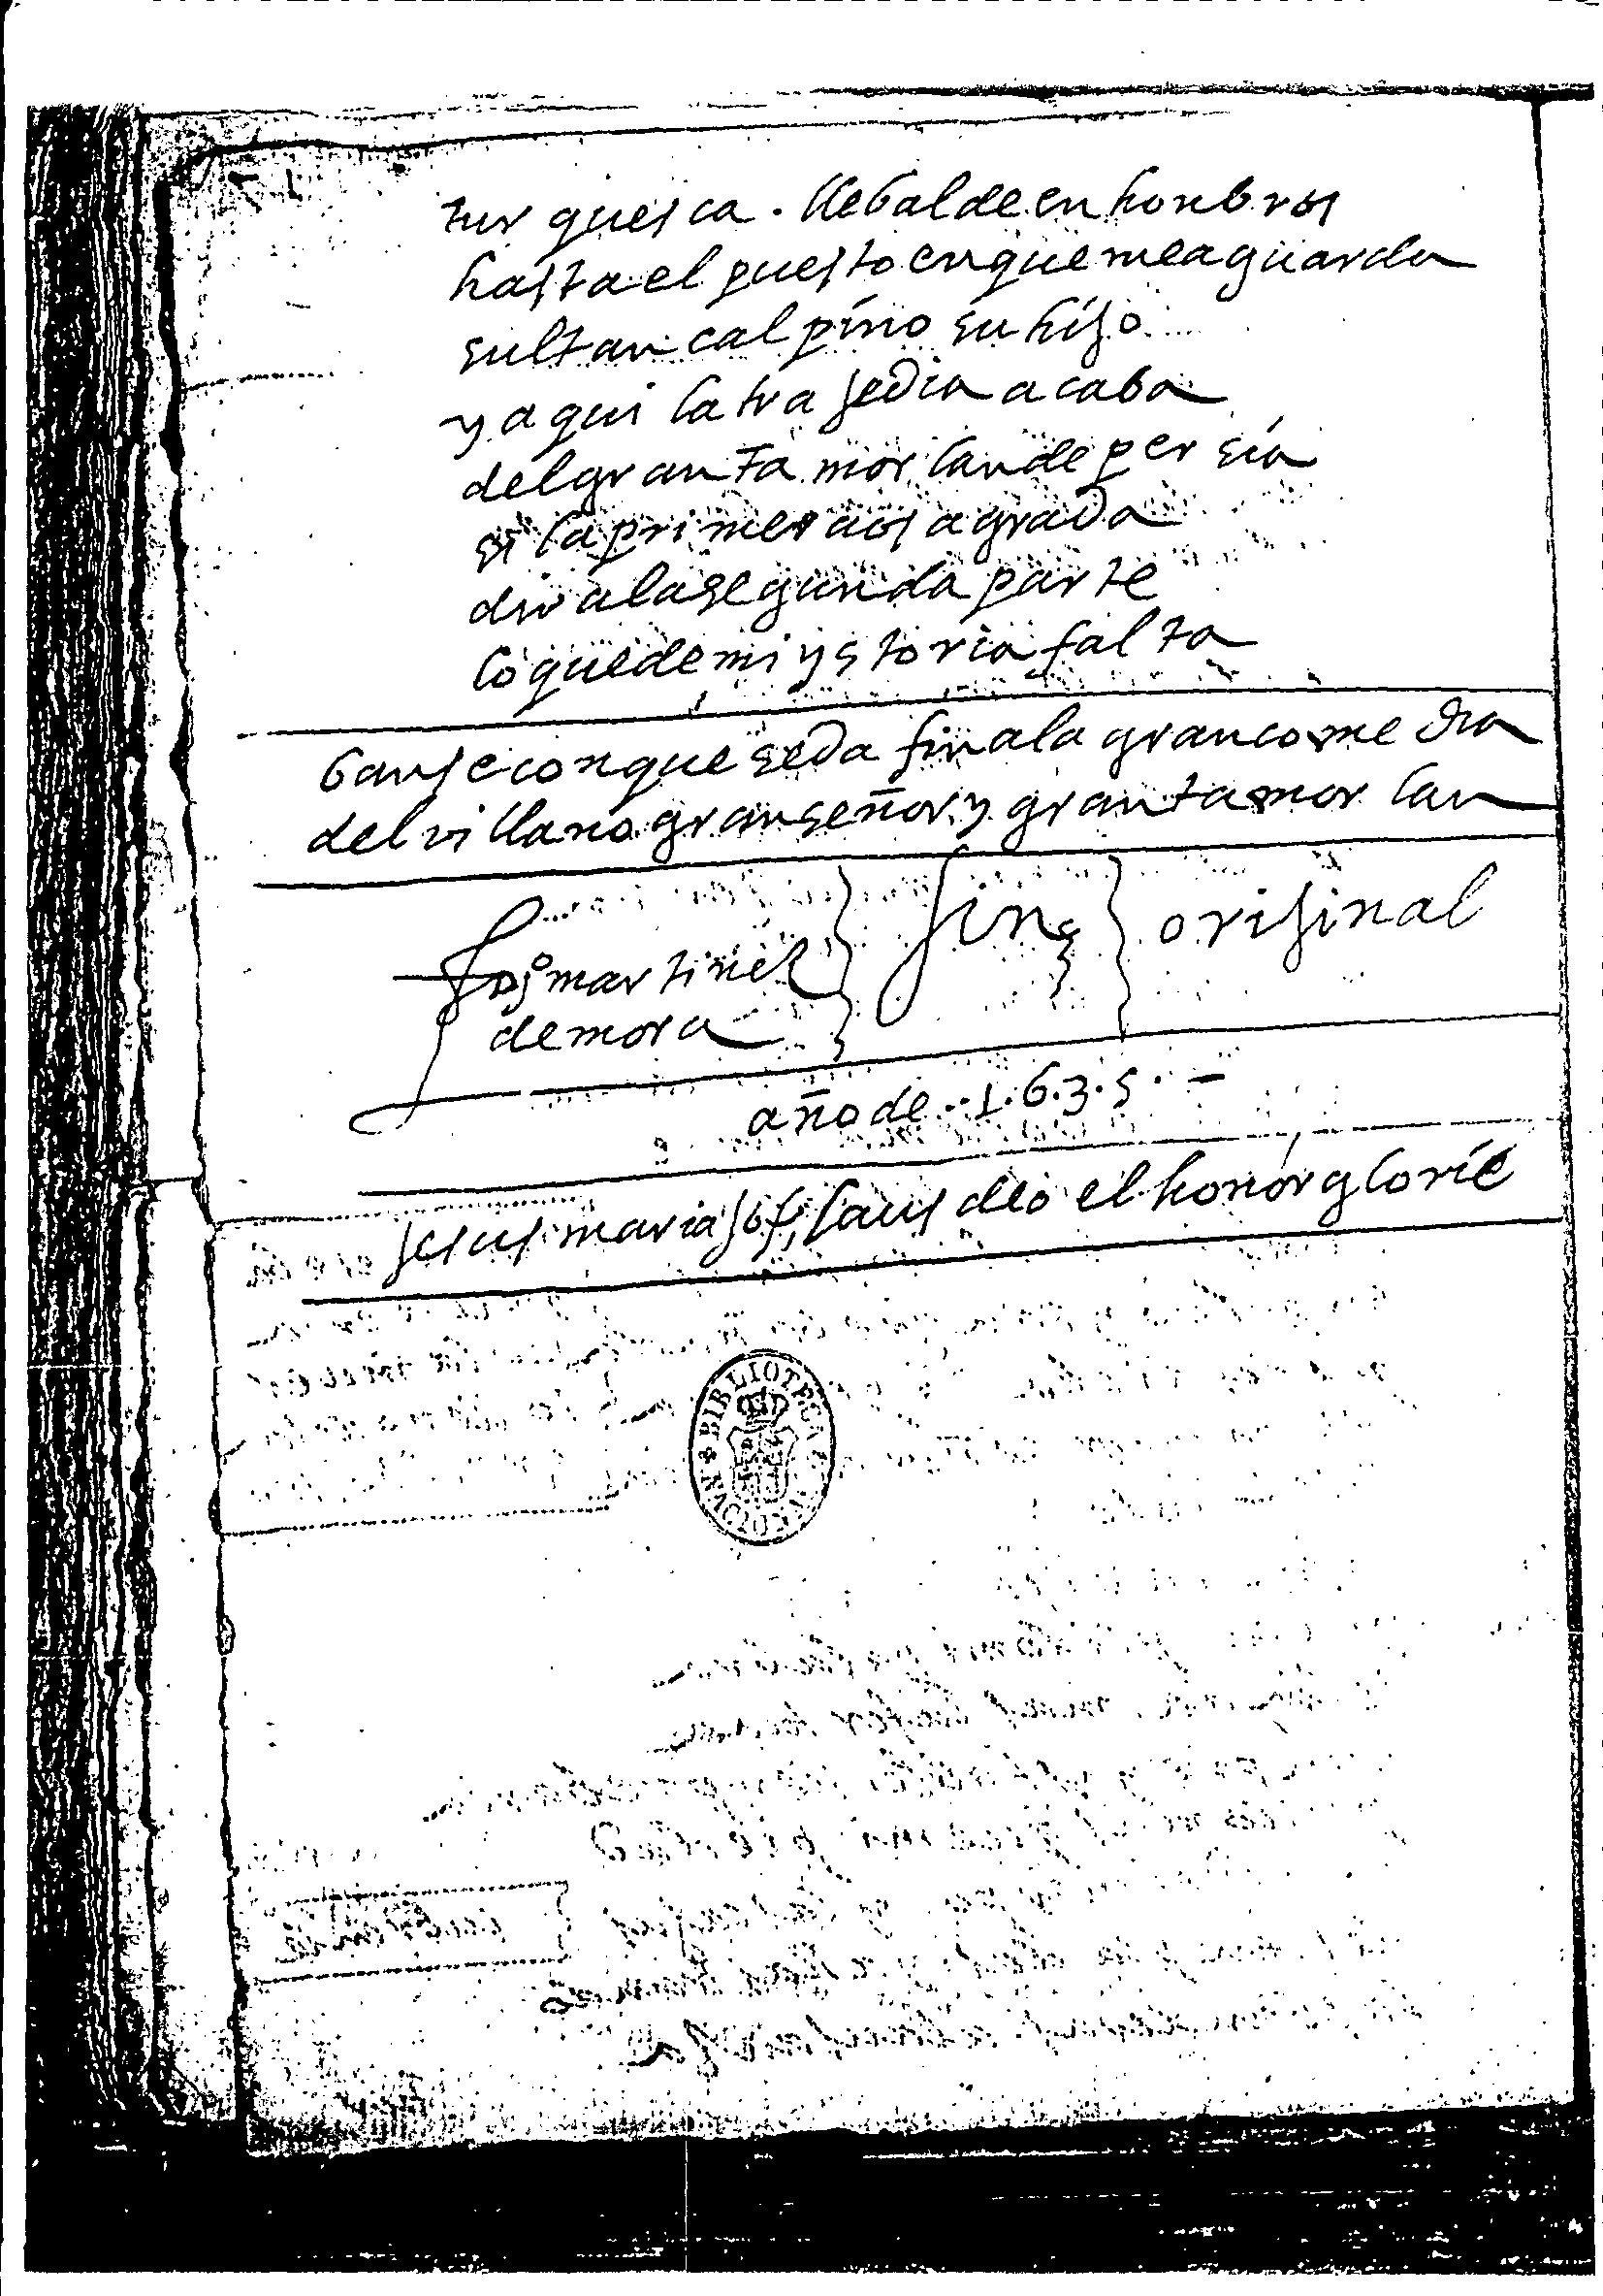 turquesca. llebalde en honbros
hasta el puesto en que me aguarda
sultan calpino su hijo
y aqui la trajedia acaba
del gran tamorlan de persia
si la primera os agrada
dira la segunda parte
lo que de mi ystoria falta
banse con que se da fin a la gran comedia
del villano gran señor y gran tamorlan
martinez fin orijinal
de mora
año de 1.6.3.5.
jesus maria josef, laus deo et honor y glorie
BIBLIOTECA NACIONAL